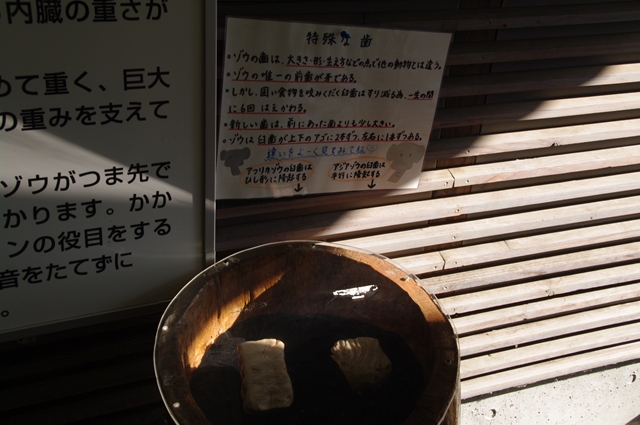 内臓の重さが
めて重く、巨大
の重みを支えて
ゾウがつま先で
かります。かか
ンの役目をする
音をたてずに
。
特殊な歯
・ゾウの歯は、大きさ・形・生え方などの点で他の動物とは違う。
・ゾウの唯一の前歯が牙である。
・しかし、固い食物を噛みくだく臼歯はすり減る為、一生の間に6回はえかわる。
・新しい歯は、前にあった歯よりも少し大きい。
・ゾウは臼歯が上下のアゴに2本ずつ、左右に1本ずつある。
違いをよーく見てみてね
アフリカゾウの臼歯は
ひし形に隆起する
アジアゾウの臼歯は
平行に隆起する